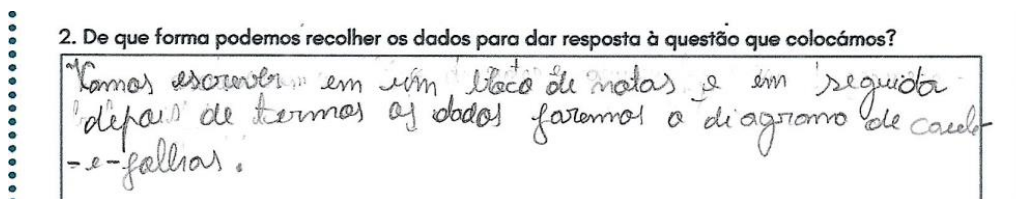 2. De que forma podemos recolher os dados para dar resposta à questão que colocámos?
Vamos escrever em um bloco de notas e em seguida
depois de termos os dados faremos o diagrama de caule-
-e-folhas.